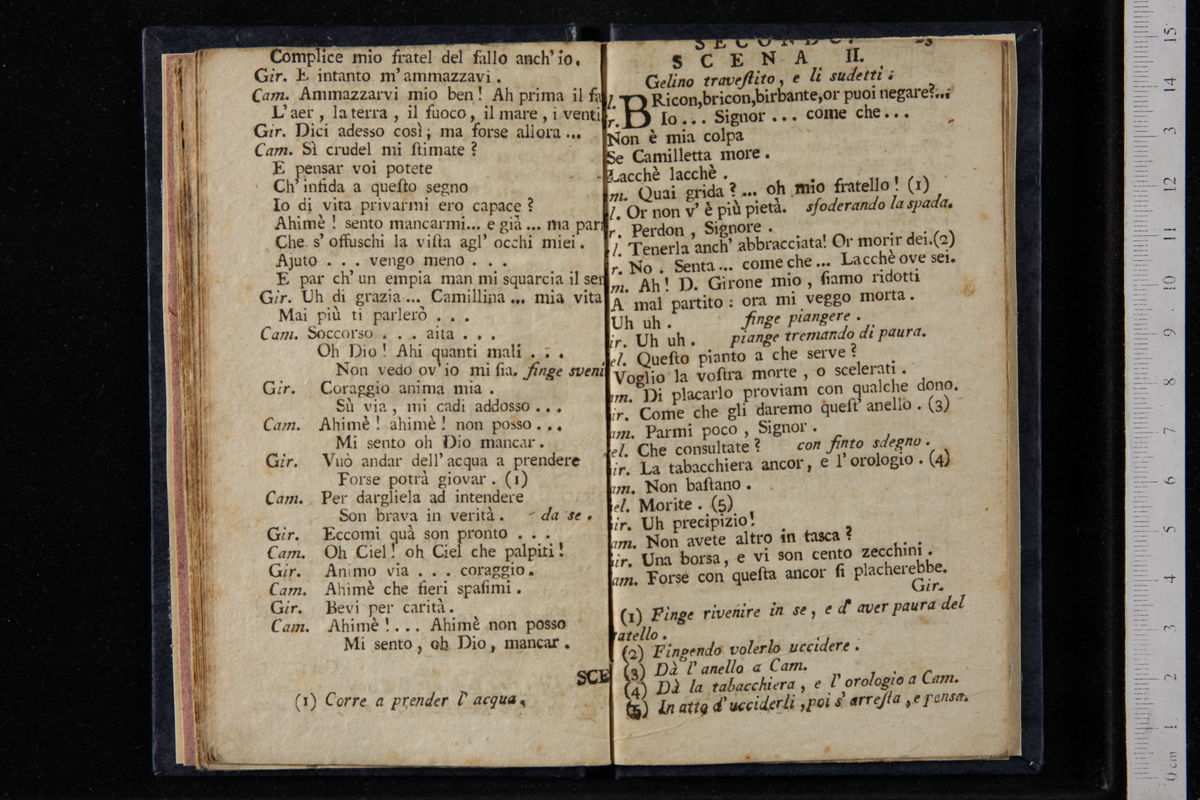 Complice mio fratel del fallo anch' io.
Gir. E intanto m' ammazzavi.
Cam. Ammazzarvi mio ben! Ah prima il fa
L' aer, la terra, il fuoco, il mare, i venti
Gir. Dici adesso così; ma forse allora ...
Cam. Sì crudel mi ſtimate?
E pensar voi potete
Ch' infida a queſto segno
Io di vita privarmi ero capace?
Ahimè! sento mancarmi... e già ... ma par
Che s' offuschi la viſta agl' occhi miei.
Ajuto . . . vengo meno . . .
E par ch' un empia man mi squarcia il sen
Gir. Uh di grazia ... Camillina ... mia vita
Mai più ti parlerò . . .
Cam. Soccorso . . . aita . . .
Oh Dio! Ahi quanti mali . . .
Non vedo ov' io mi ſia. finge sveni
Gir. Coraggio anima mia.
Sù via, mi cadi addosso . . .
Cam. Ahimè! ahimè! non posso . . .
Mi sento oh Dio mancar.
Gir. Vuò andar dell' acqua a prendere
Forse potrà giovar. (1)
Cam. Per dargliela ad intendere
Son brava in verità. da se.
Gir. Eccomi quà son pronto . . .
Cam. Oh Ciel! oh Ciel che palpiti!
Gir. Animo via . . . coraggio.
Cam. Ahimè che fieri spaſimi.
Gir. Bevi per carità.
Cam. Ahimè! . . . Ahimè non posso
Mi sento, oh Dio, mancar.
SCE
(1) Corre a prender l' acqua.
SECONDO. 23
SCENA II.
Gelino traveſtito, e li sudetti.
l. BRicon, bricon, birbante, or puoi negare?...
r. Io . . . Signor . . . come che . . .
Non è mia colpa
Se Camilletta more.
Lacchè lacchè.
m. Quai grida? ... oh mio fratello! (1)
l. Or non v' è più pietà. sfoderando la spada.
r. Perdon, Signore.
l. Tenerla anch' abbracciata! Or morir dei.(2)
r. No. Senta ... come che ... Lacchè ove sei.
m. Ah! D. Girone mio, ſiamo ridotti
A mal partito: ora mi veggo morta.
Uh uh. finge piangere.
ir. Uh uh. piange tremando di paura.
el. Queſto pianto a che serve?
Voglio la voſtra morte, o scelerati.
am. Di placarlo proviam con qualche dono.
ir. Come che gli daremo queſt' anello. (3)
am. Parmi poco, Signor.
el. Che consultate? con finto sdegno.
ir. La tabacchiera ancor, e l' orologio. (4)
am. Non baſtano.
el. Morite. (5)
ir. Uh precipizio!
am. Non avete altro in tasca?
ir. Una borsa, e vi son cento zecchini.
am. Forse con queſta ancor ſi placherebbe.
Gir.
(1) Finge rivenire in se, e d' aver paura del
atello.
(2) Fingendo volerlo uccidere.
(3) Dà l' anello a Cam.
(4) Dà la tabacchiera, e l' orologio a Cam.
(5) In atto d' ucciderli, poi s' arreſta, e pensa.
15
14
13
12
11
10
9
8
7
6
5
4
3
2
1
0 cm